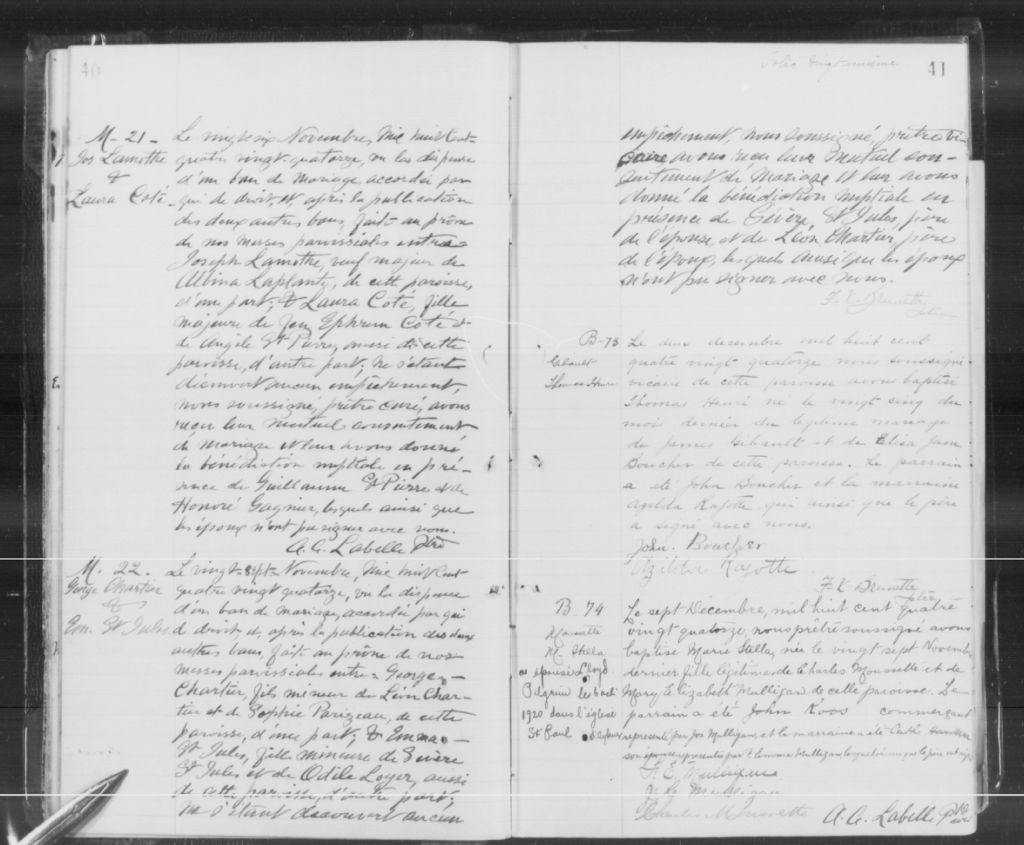 40
M - 21 -
Jos Lamothe
&
Laura Coté
Le vingt six Novembre, Mil huit cent
quatre vingt quatorze, vu la dispense
d'un ban de mariage, accordée par
qui de droit, et après la publication
des deux autres bans, faite au prône
de nos messes paroissiales entre
Joseph Lamothe, veuf majeur de
Albina Laplante, de cette paroisse,
d'une part; & Laura Coté, fille
majeure de Jean Ephrem Coté &
de Angèle St Pierre, aussi de cette
paroisse, d'autre part; ne s'étant
découvert aucun empêchement,
nous soussigné, prêtre curé, avons
reçu leur mutuel consentement
de mariage et leur avons donné
la bénédiction nuptiale en pré-
sence de Guillaume St Pierre et de
Honoré Gagnier, lesquels ainsi que
les époux n'ont pu signer avec nous.
A. C. Labelle Ptre
M. 22.
George Chartier
&
Em. St Jules
Le vingt-sept Novembre, Mil huit cent
quatre vingt quatorze, vu la dispense
d'un ban de mariage, accordée par qui
de droit et, après la publication des deux
autres bans, fait au prône de nos
messes paroissiales entre George
Chartier, fils mineur de Léon Char-
tier et de Sophie Parizeau, de cette
paroisse, d'une part; & Emma
St Jules, fille mineure de Sévère
St Jules et de Odile Loyer, aussi
de cette paroisse, d'autre part;
ne s'étant découvert aucun
41
Folio vingt unième
empêchement, nous soussigné, prêtre vi-
caire avons reçu leur mutuel con-
sentiment de mariage et leur avons
donné la bénédiction nuptiale en
présence de Sévère St Jules, père
de l'épouse et de Léon Chartier, père
de l'époux, lesquels ainsi que les époux
n'ont pu signer avec nous.
F. X. Brunette
B-73
Gibault
Thomas Henri
Le deux decembre mil huit cent
quatre vingt quatorze nous soussigné
vicaire de cette paroisse avons baptisé
Thomas Henri né le vingt cinq du
mois dernier du légitime mariage
de James Gibault et de Eliza Jane
Boucher de cette paroisse. Le parrain
a été John Boucher et la marraine
Azilda Rajotte qui ainsi que le père
a signé avec nous.
John. Boucher
Azilda Rajotte
F. X. Brunette
B 74
M. Stella
a épousé Lloyd
Pilgrim le 6 oct.
1920 dans l'église
St Paul
Le sept Décembre, mil huit cent quatre
vingt quatorze, nous prêtre soussigné avons
baptisé Marie Stella, née le vingt sept Novembre
dernier fille légitime de Charles Moussette et de
Mary Elizabeth Mulligan de cette paroisse. Le
parrain a été John Roos commerçant
représenté par Jos Mulligan, et la marraine a été Cathe
son épouse représentée par Mulligan lesquels ainsi que le père ont signé
Mulligan
Mulligan
Charles Moussette
A. C. Labelle Ptre